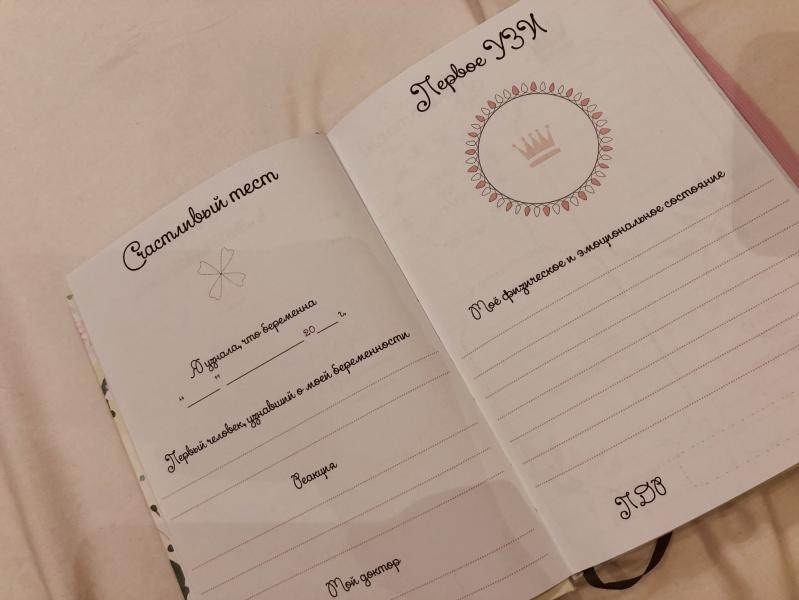 Счастливый тест
Я узнала, что беременна
“___” __________ 20___ г.
Первый человек, узнавший о моей беременности
Реакция
Мой доктор
Первое УЗИ
Моё физическое и эмоциональное состояние
ПДР